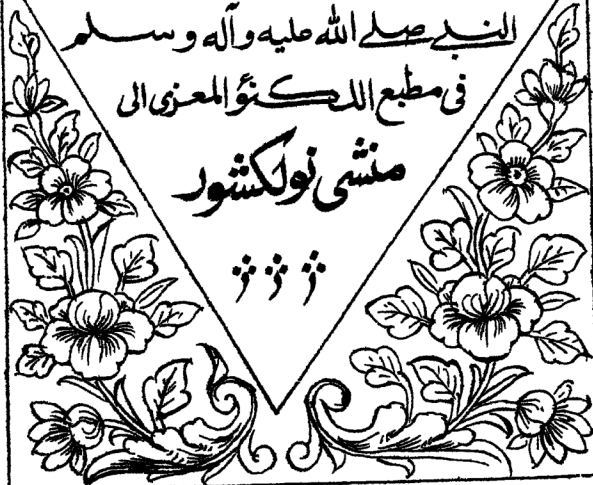 النبي صلے الله عليه وآله وسلم
فى مطبع اللكنؤ المعزى الى
منشى نولكشور